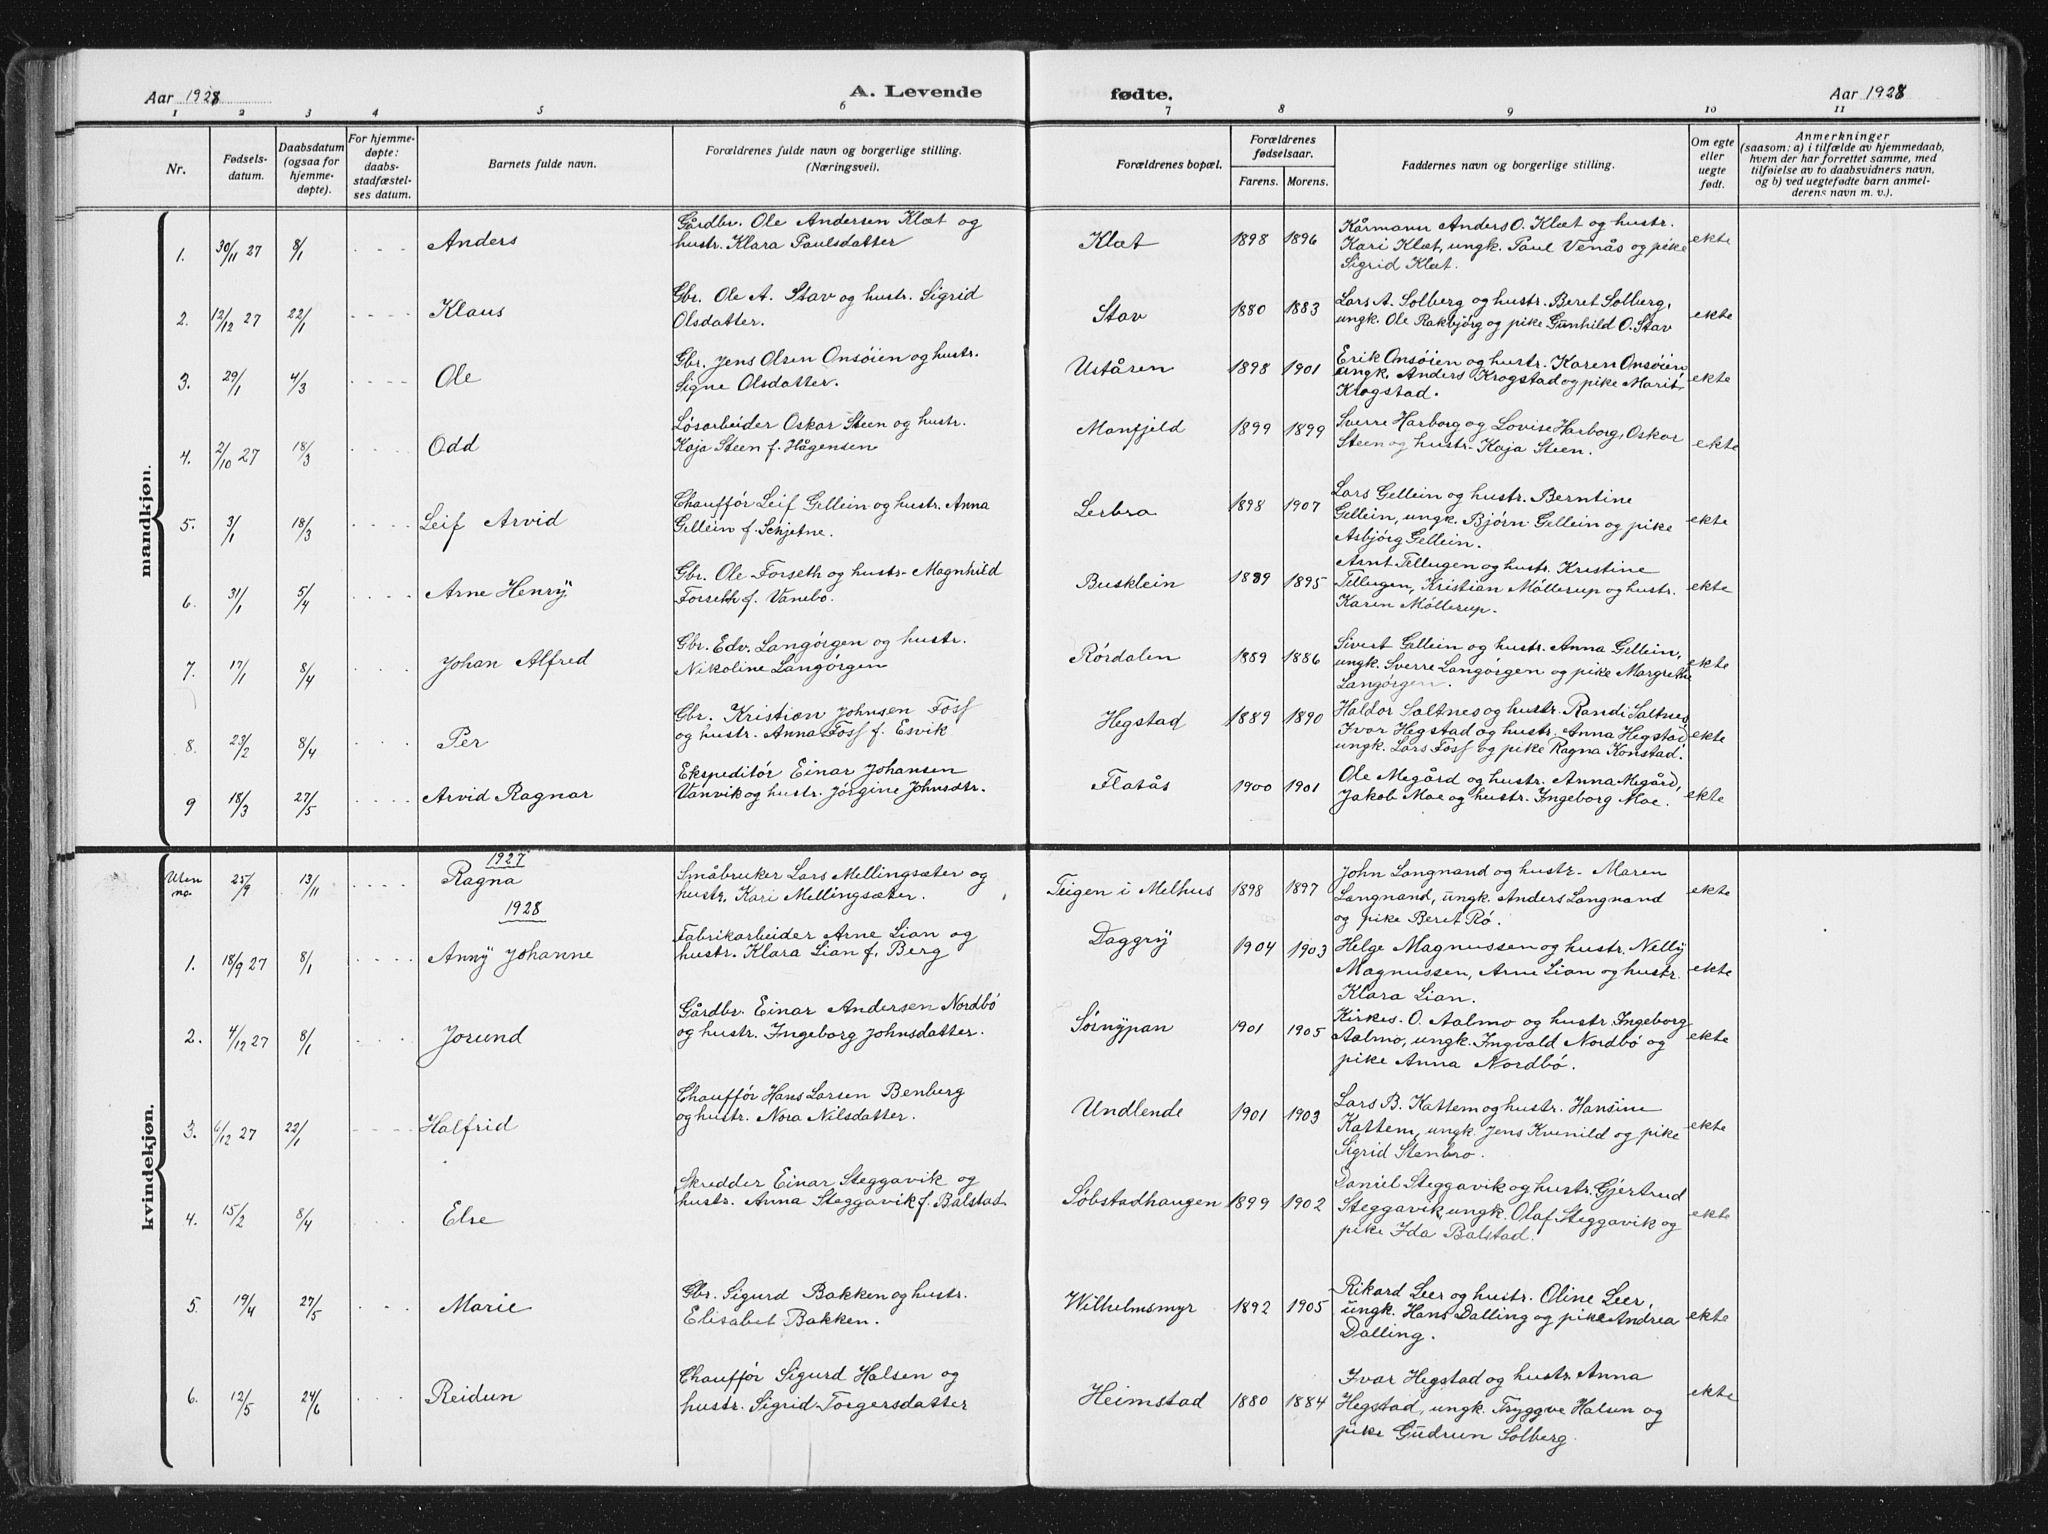 Aar 1928
A. Levende
fødte.
Aar 1928
1 2 3 4 5 6 7 8 9 10 11
Nr.
Fødsels-
datum.
Daabsdatum
(ogsaa for
hjemme-
døpte).
For hjemme-
døpte:
daabs-
stadfæstel-
ses datum.
Barnets fulde navn.
Forældrenes fulde navn og borgerlige stilling.
(Næringsvei).
Forældrenes bopæl.
Forældrenes
fødselsaar.
Farens. Morens.
Faddernes navn og borgerlige stilling.
Om egte
eller
uegte
født.
Anmerkninger
(saasom: a) i tilfælde av hjemmedaab,
hvem der har forrettet samme, med
tilføielse av to daabsvidners navn,
og b) ved uegtefødte barn anmel-
derens navn m. v.).
mandkjøn.
1. 30/11 27 8/1 Anders
Gårdbr. Ole Andersen Klæt og
hustr. Klara Paulsdatter
Klæt 1898 1896
Kårmann Anders O. Klæt og hustr.
Kari Klæt, ungk. Paul Venås og pike
Sigrid Klæt.
ekte
2. 12/12 27 22/1 Klaus
Gbr. Ole A. Stav og hustr. Sigrid
Olsdatter.
Stav 1880 1883
Lars A. Solberg og hustr. Beret Solberg,
ungk. Ole Rakbjörg og pike Gunhild O. Stav
ekte
3. 29/1 4/3 Ole
Gbr. Jens Olsen Onsöien og hustr.
Signe Olsdatter.
Uståren 1898 1901
Erik Onsöien og hustr. Karen Onsöien
ungk. Anders Krogstad og pike Marit
Krogstad.
ekte
4. 2/10 27 18/3 Odd
Løsarbeider Oskar Steen og hustr.
Kaja Steen f. Hågensen
Monfjeld 1899 1899
Sverre Harborg og Lovise Harborg, Oskar
Steen og hustr. Kaja Steen.
ekte
5. 3/1 18/3 Leif Arvid
Chauffór Leif Gellein og hustr. Anna
Gellein f. Schjetne.
Lerbro 1898 1907
Lars Gellein og hustr. Berntine
Gellein, ungk. Bjórn Gellein og pike
Asbjörg Gellein.
ekte
6. 31/1 5/4 Arne Henry
Gbr. Ole Forseth og hustr. Magnhild
Forseth f. Vanebo.
Busklein 1889 1895
Arnt Tellugen og hustr. Kristine
Tellugen, Kristian Möllerup og hustr.
Karen Möllerup.
ekte
7. 17/1 8/4 Johan Alfred
Gbr. Edv. Langórgen og hustr.
Nikoline Langórgen
Rórdalen 1889 1886
Sivert Gellein og hustr. Anna Gellein,
ungk. Sverre Langórgen og pike Margrethe
Langórgen.
ekte
8. 23/2 8/4 Per
Gbr. Kristian Johnsen Foss
og hustr. Anna Foss f. Esvik
Hegstad 1889 1890
Haldor Saltnes og hustr. Randi Saltnes,
Ivar Hegstad og hustr. Anna Hegstad
ungk. Lars Foss og pike Ragna Konstad.
ekte
9 18/3 27/5 Arvid Ragnar
Ekspeditór Einar Johansen
Vanvik og hustr. Jórgine Johnsdtr.
Flatås 1900 1901
Ole Megård og hustr. Anna Megård,
Jakob Moe og hustr. Ingeborg Moe.
ekte
kvindekjøn.
1927
Uten
no. 25/9 13/11 Ragna
Småbruker Lars Mellingsæter og
hustr. Kari Mellingsæter.
Teigen i Melhus 1898 1897
John Langnand og hustr. Maren
Langnand, ungk. Anders Langnand
og pike Beret Rö.
ekte
1928
1. 18/9 27 8/1 Anny Johanne
Fabrikarbeider Arne Lian og
hustr. Klara Lian f. Berg
Daggry 1904 1903
Helge Magnussen og hustr. Nelly
Magnussen, Arne Lian og hustr.
Klara Lian.
ekte
2. 4/12 27 8/1 Jorund
Gårdbr. Einar Andersen Nordbö
og hustr. Ingeborg Johnsdatter.
Sórnypan 1901 1905
Kirkes. O. Aalmo og hustr. Ingeborg
Aalmo, ungk. Ingvald Nordbö og
pike Anna Nordbö.
ekte
3. 6/12 27 22/1 Halfrid
Chauffór Hans Larsen Benberg
og hustr. Nora Nilsdatter.
Undlende 1901 1903
Lars B. Kattem og hustr. Hansine
Kattem, ungk. Jens Kvenild og pike
Sigrid Stenbro.
ekte
4. 15/2 8/4 Else
Skredder Einar Steggavik og
hustr. Anna Steggavik f. Balstad
Söbstadhaugen 1899 1902
Daniel Steggavik og hustr. Gjertrud
Steggavik, ungk. Olaf Steggavik og
pike Ida Balstad.
ekte
5. 19/4 27/5 Marie
Gbr. Sigurd Bakken og hustr.
Elisabet Bakken.
Wilhelmsmyr 1892 1905
Rikard Leer og hustr. Oline Leer,
ungk. Hans Dalling og pike Andrea
Dalling.
ekte
6. 12/5 24/6 Reidun
Chauffór Sigurd Halsen og
hustr. Sigrid Torgersdatter
Heimstad 1880 1884
Ivar Hegstad og hustr. Anna
Hegstad, ungk. Tryggve Halsen og
pike Gudrun Solberg.
ekte